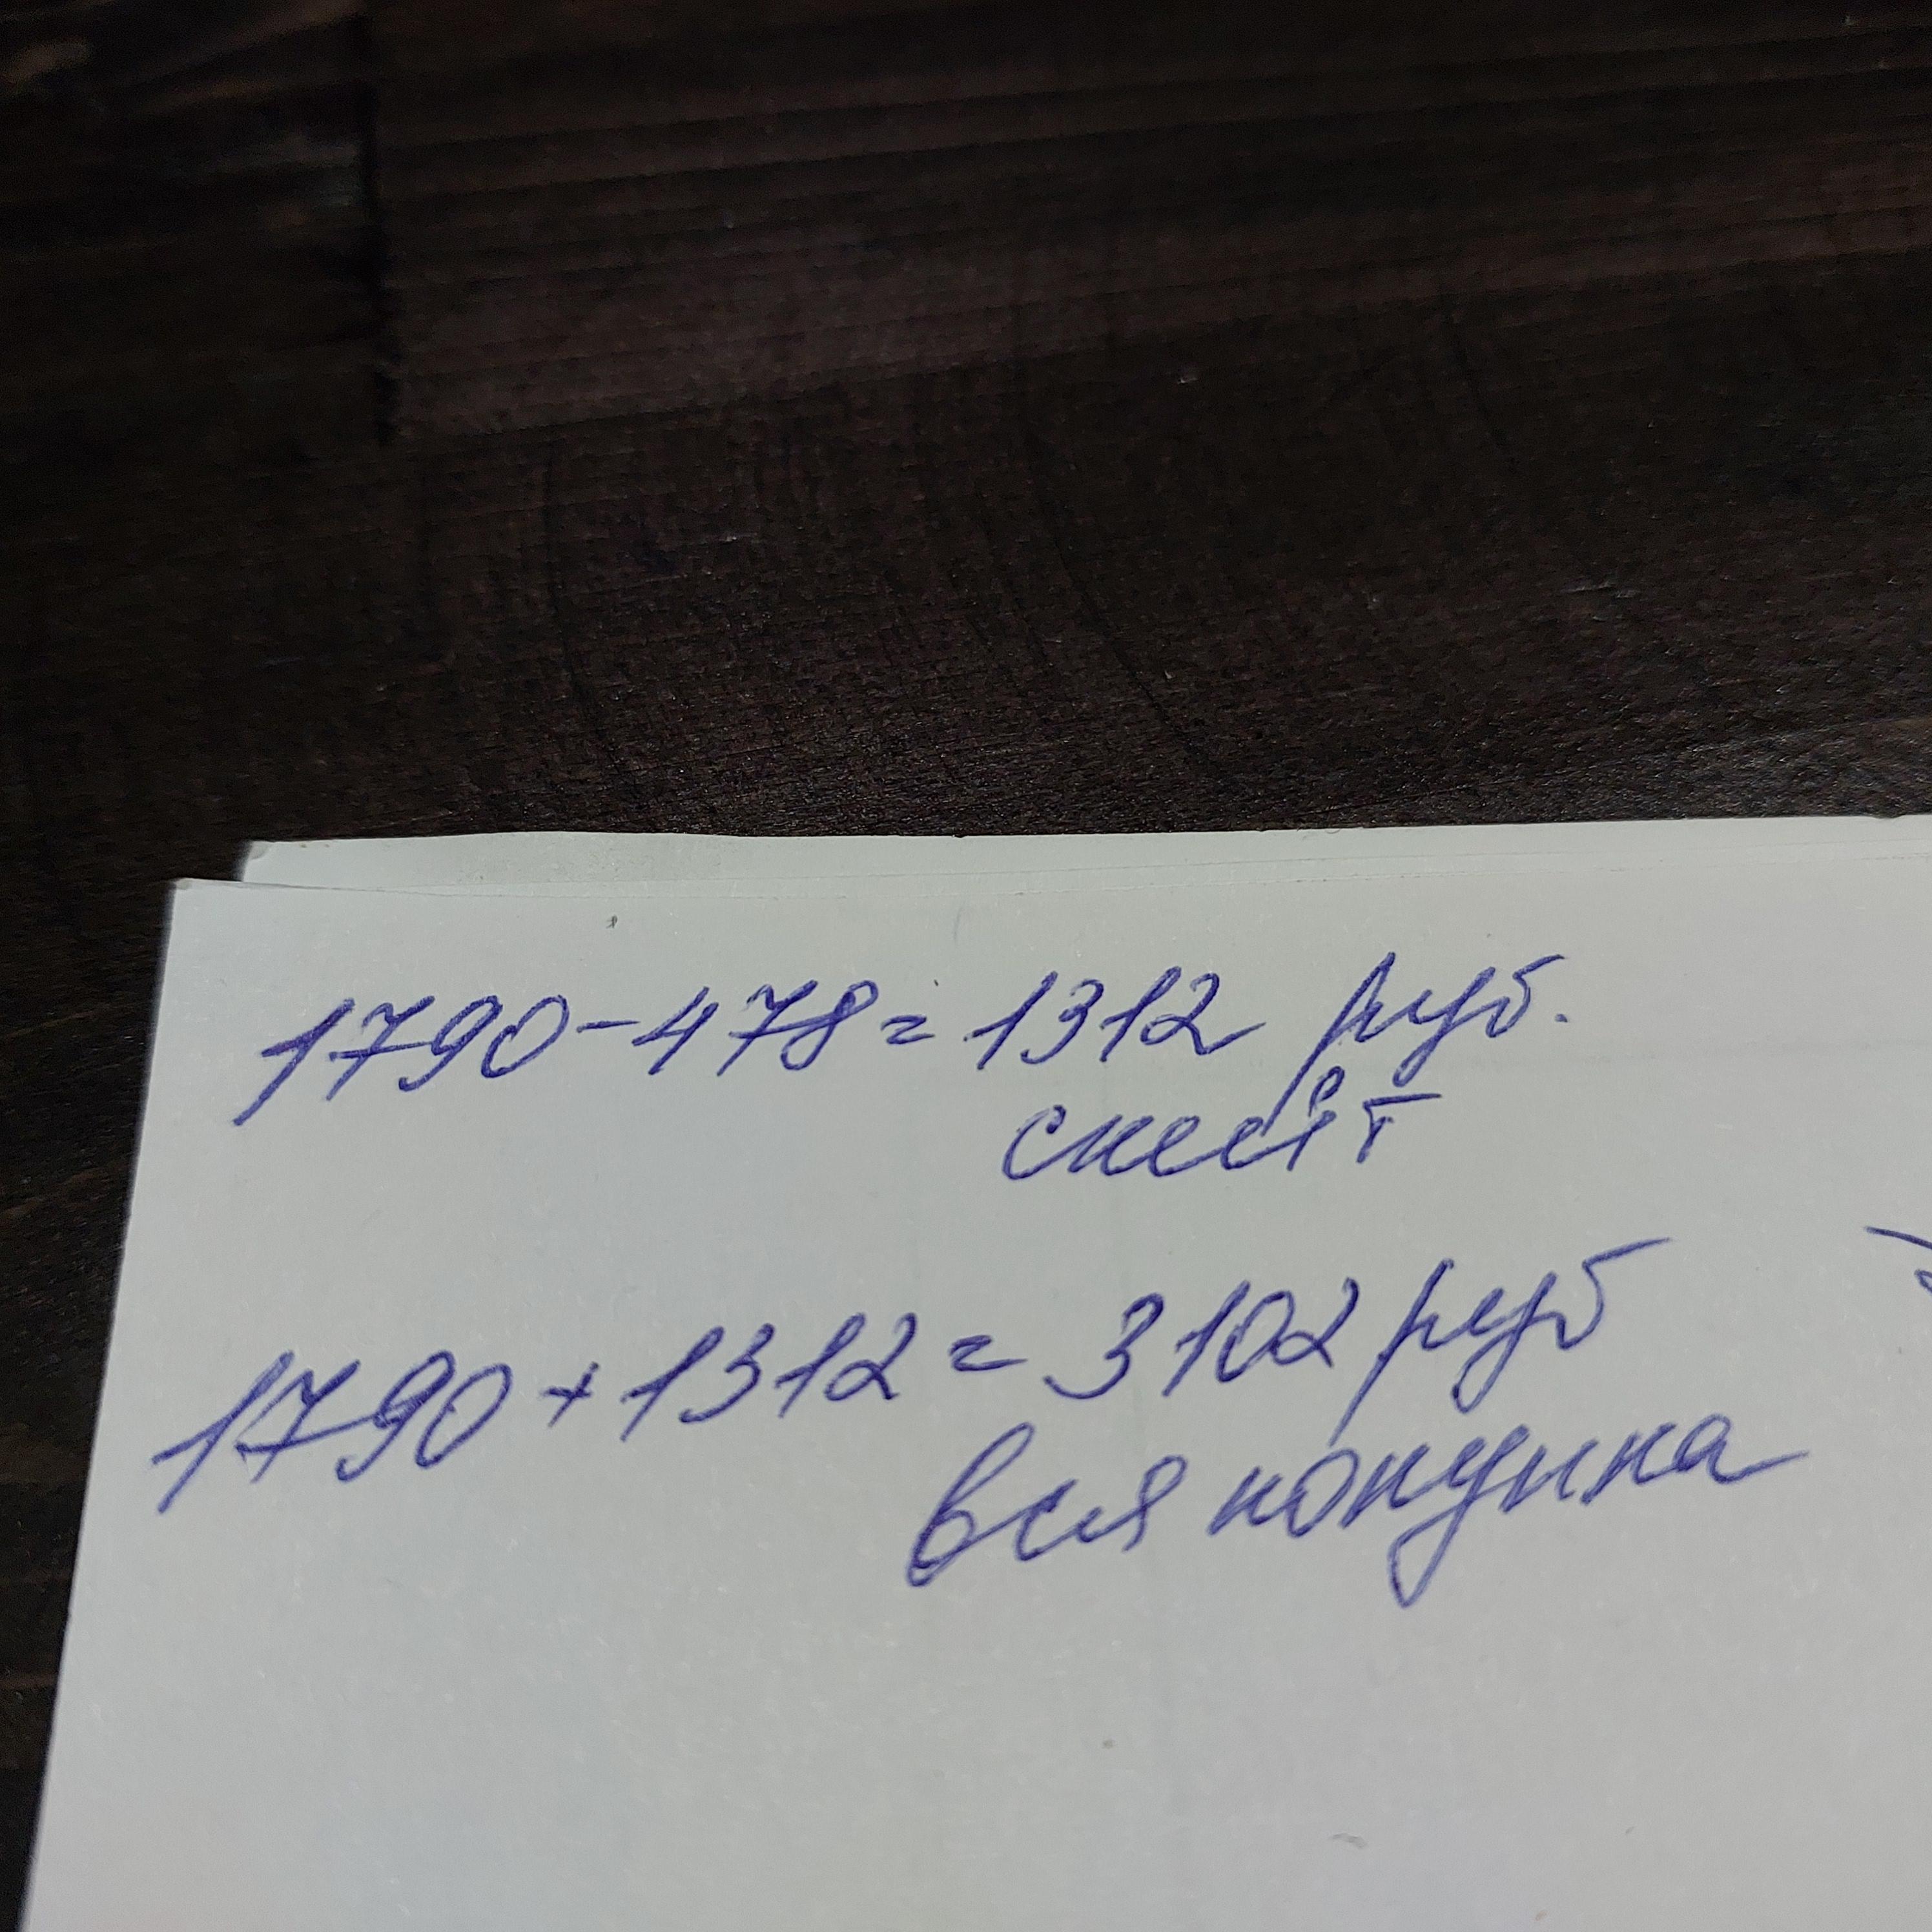 1790-478=1312 руб.
1790+1312=3102 руб
вся покупка